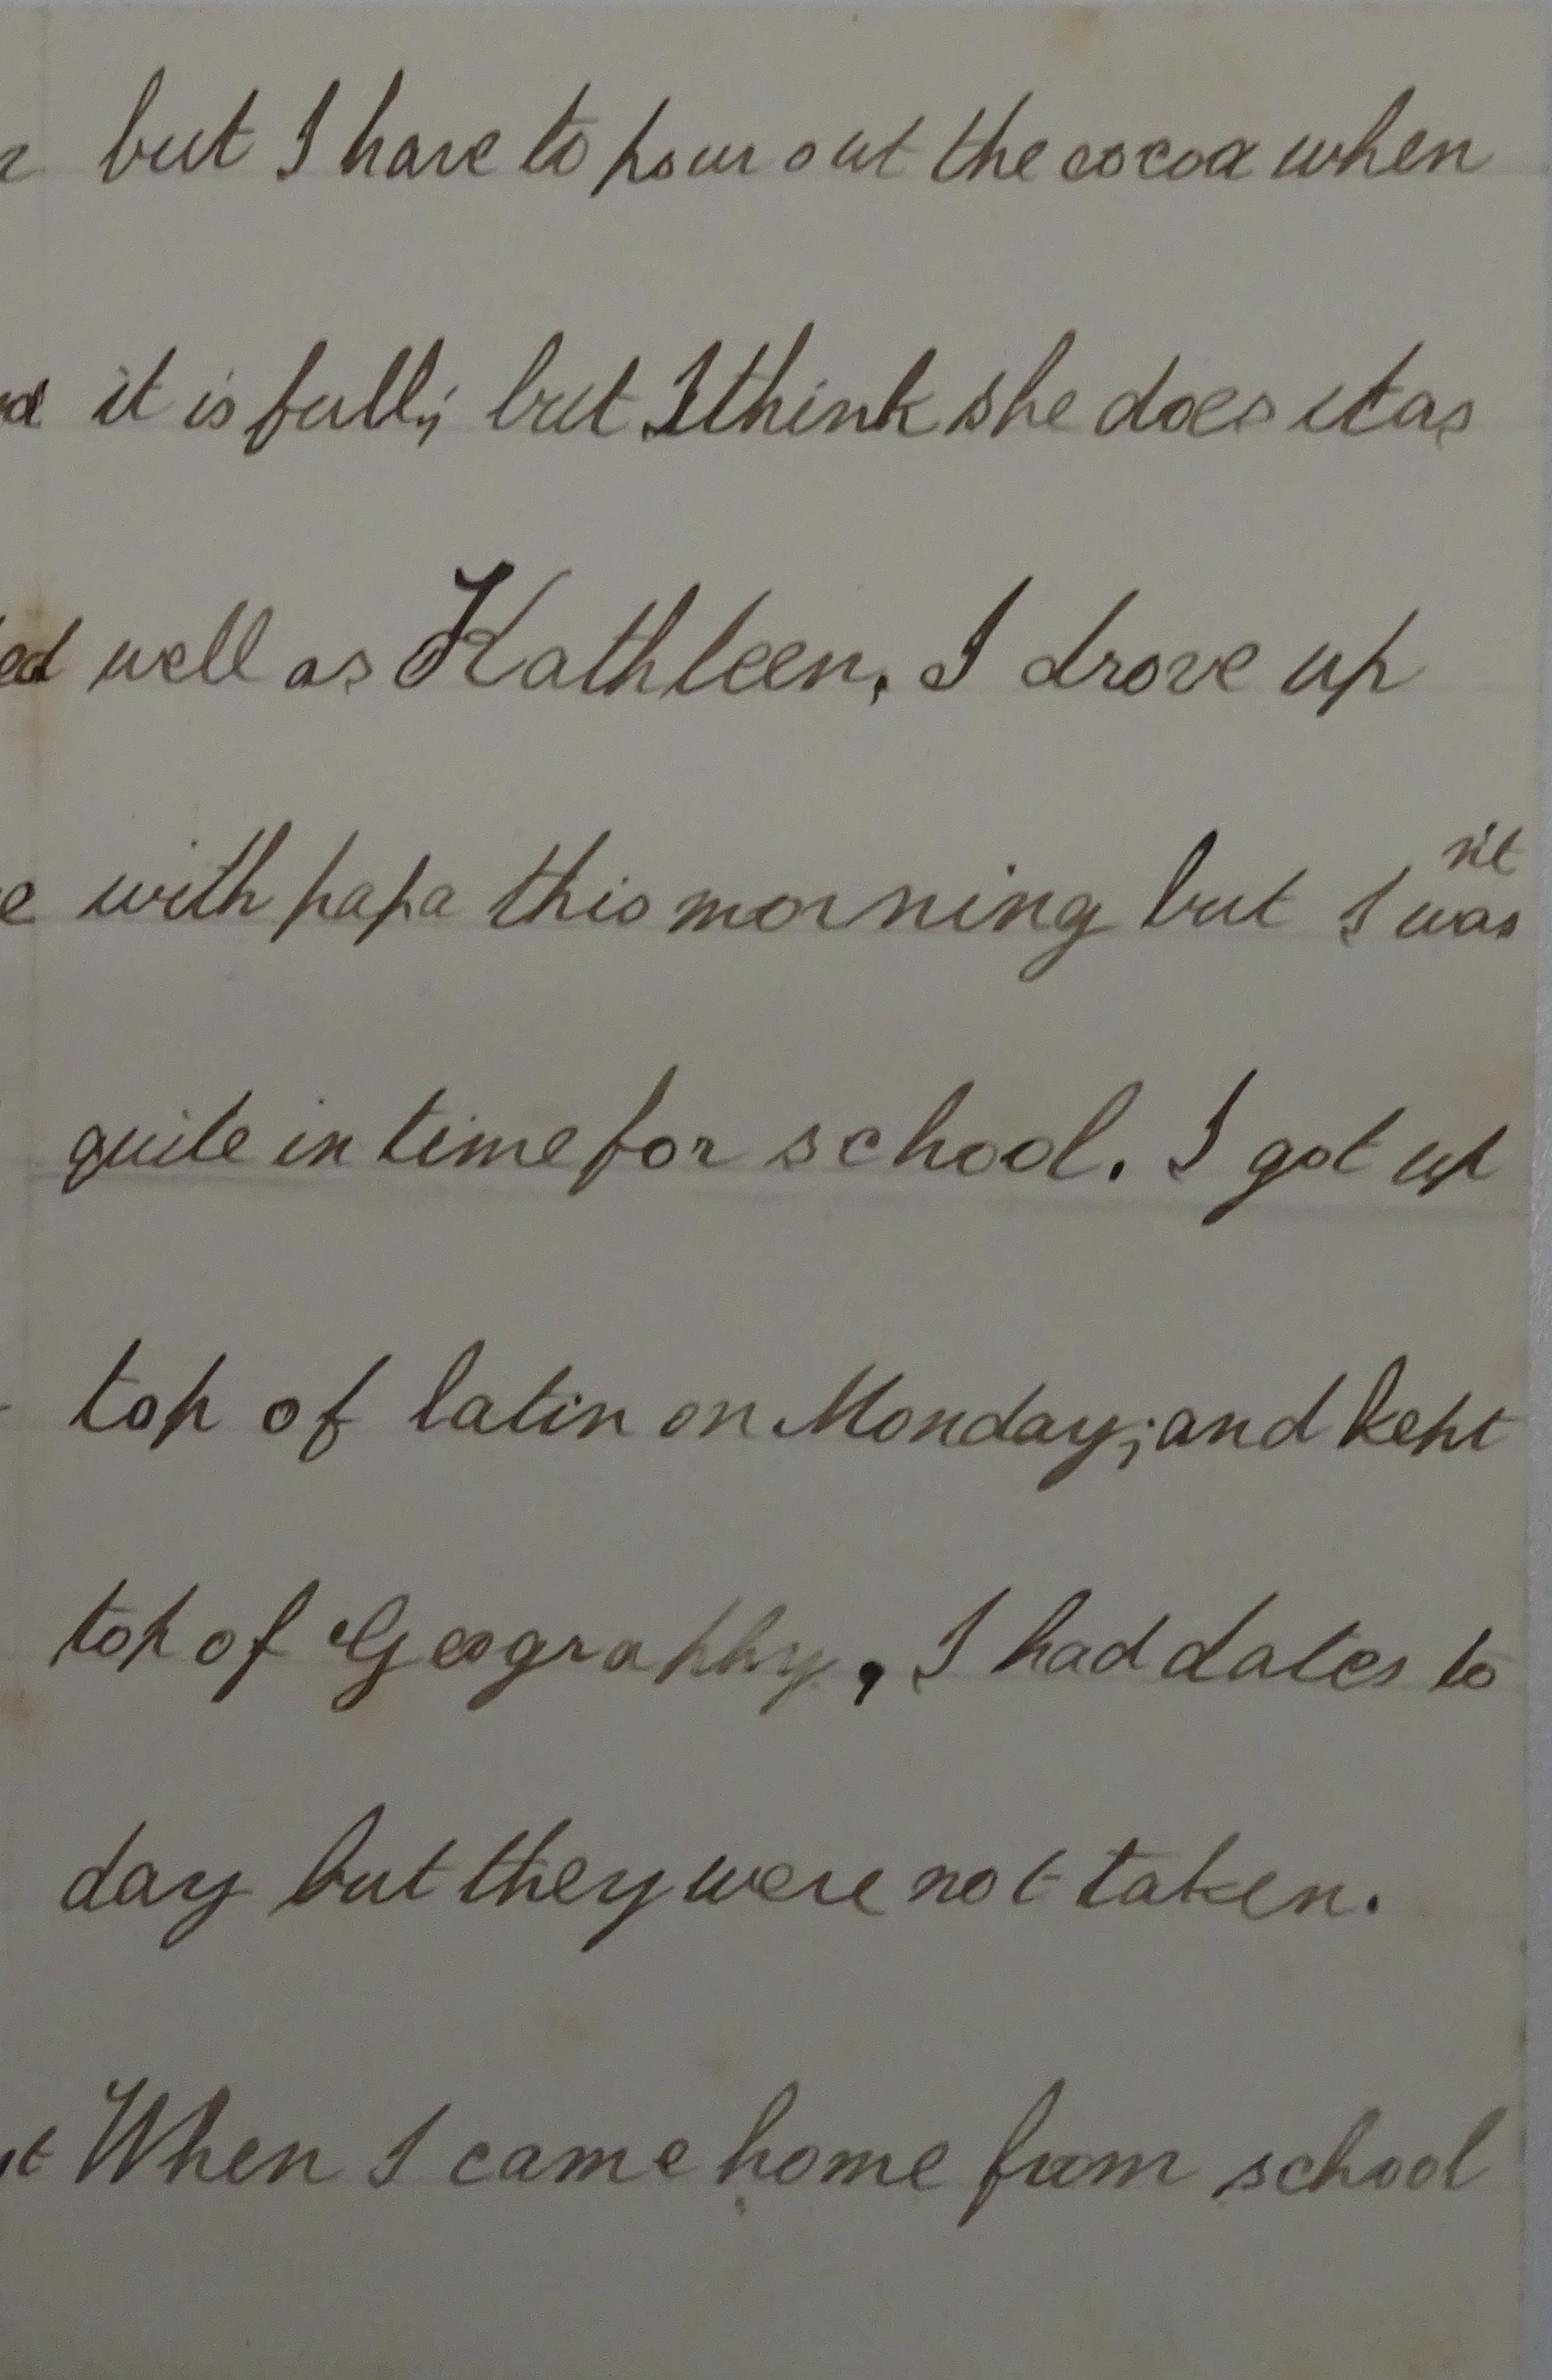 but I have to pour out the cocoa when
it is full; but I think she does it as
well as Kathleen, I drove up
with papa this morning but I wasn't
quite in time for school. I got up
top of latin on Monday; and kept
top of Geography, I had dates to
day but they were not taken.
When I came home from school